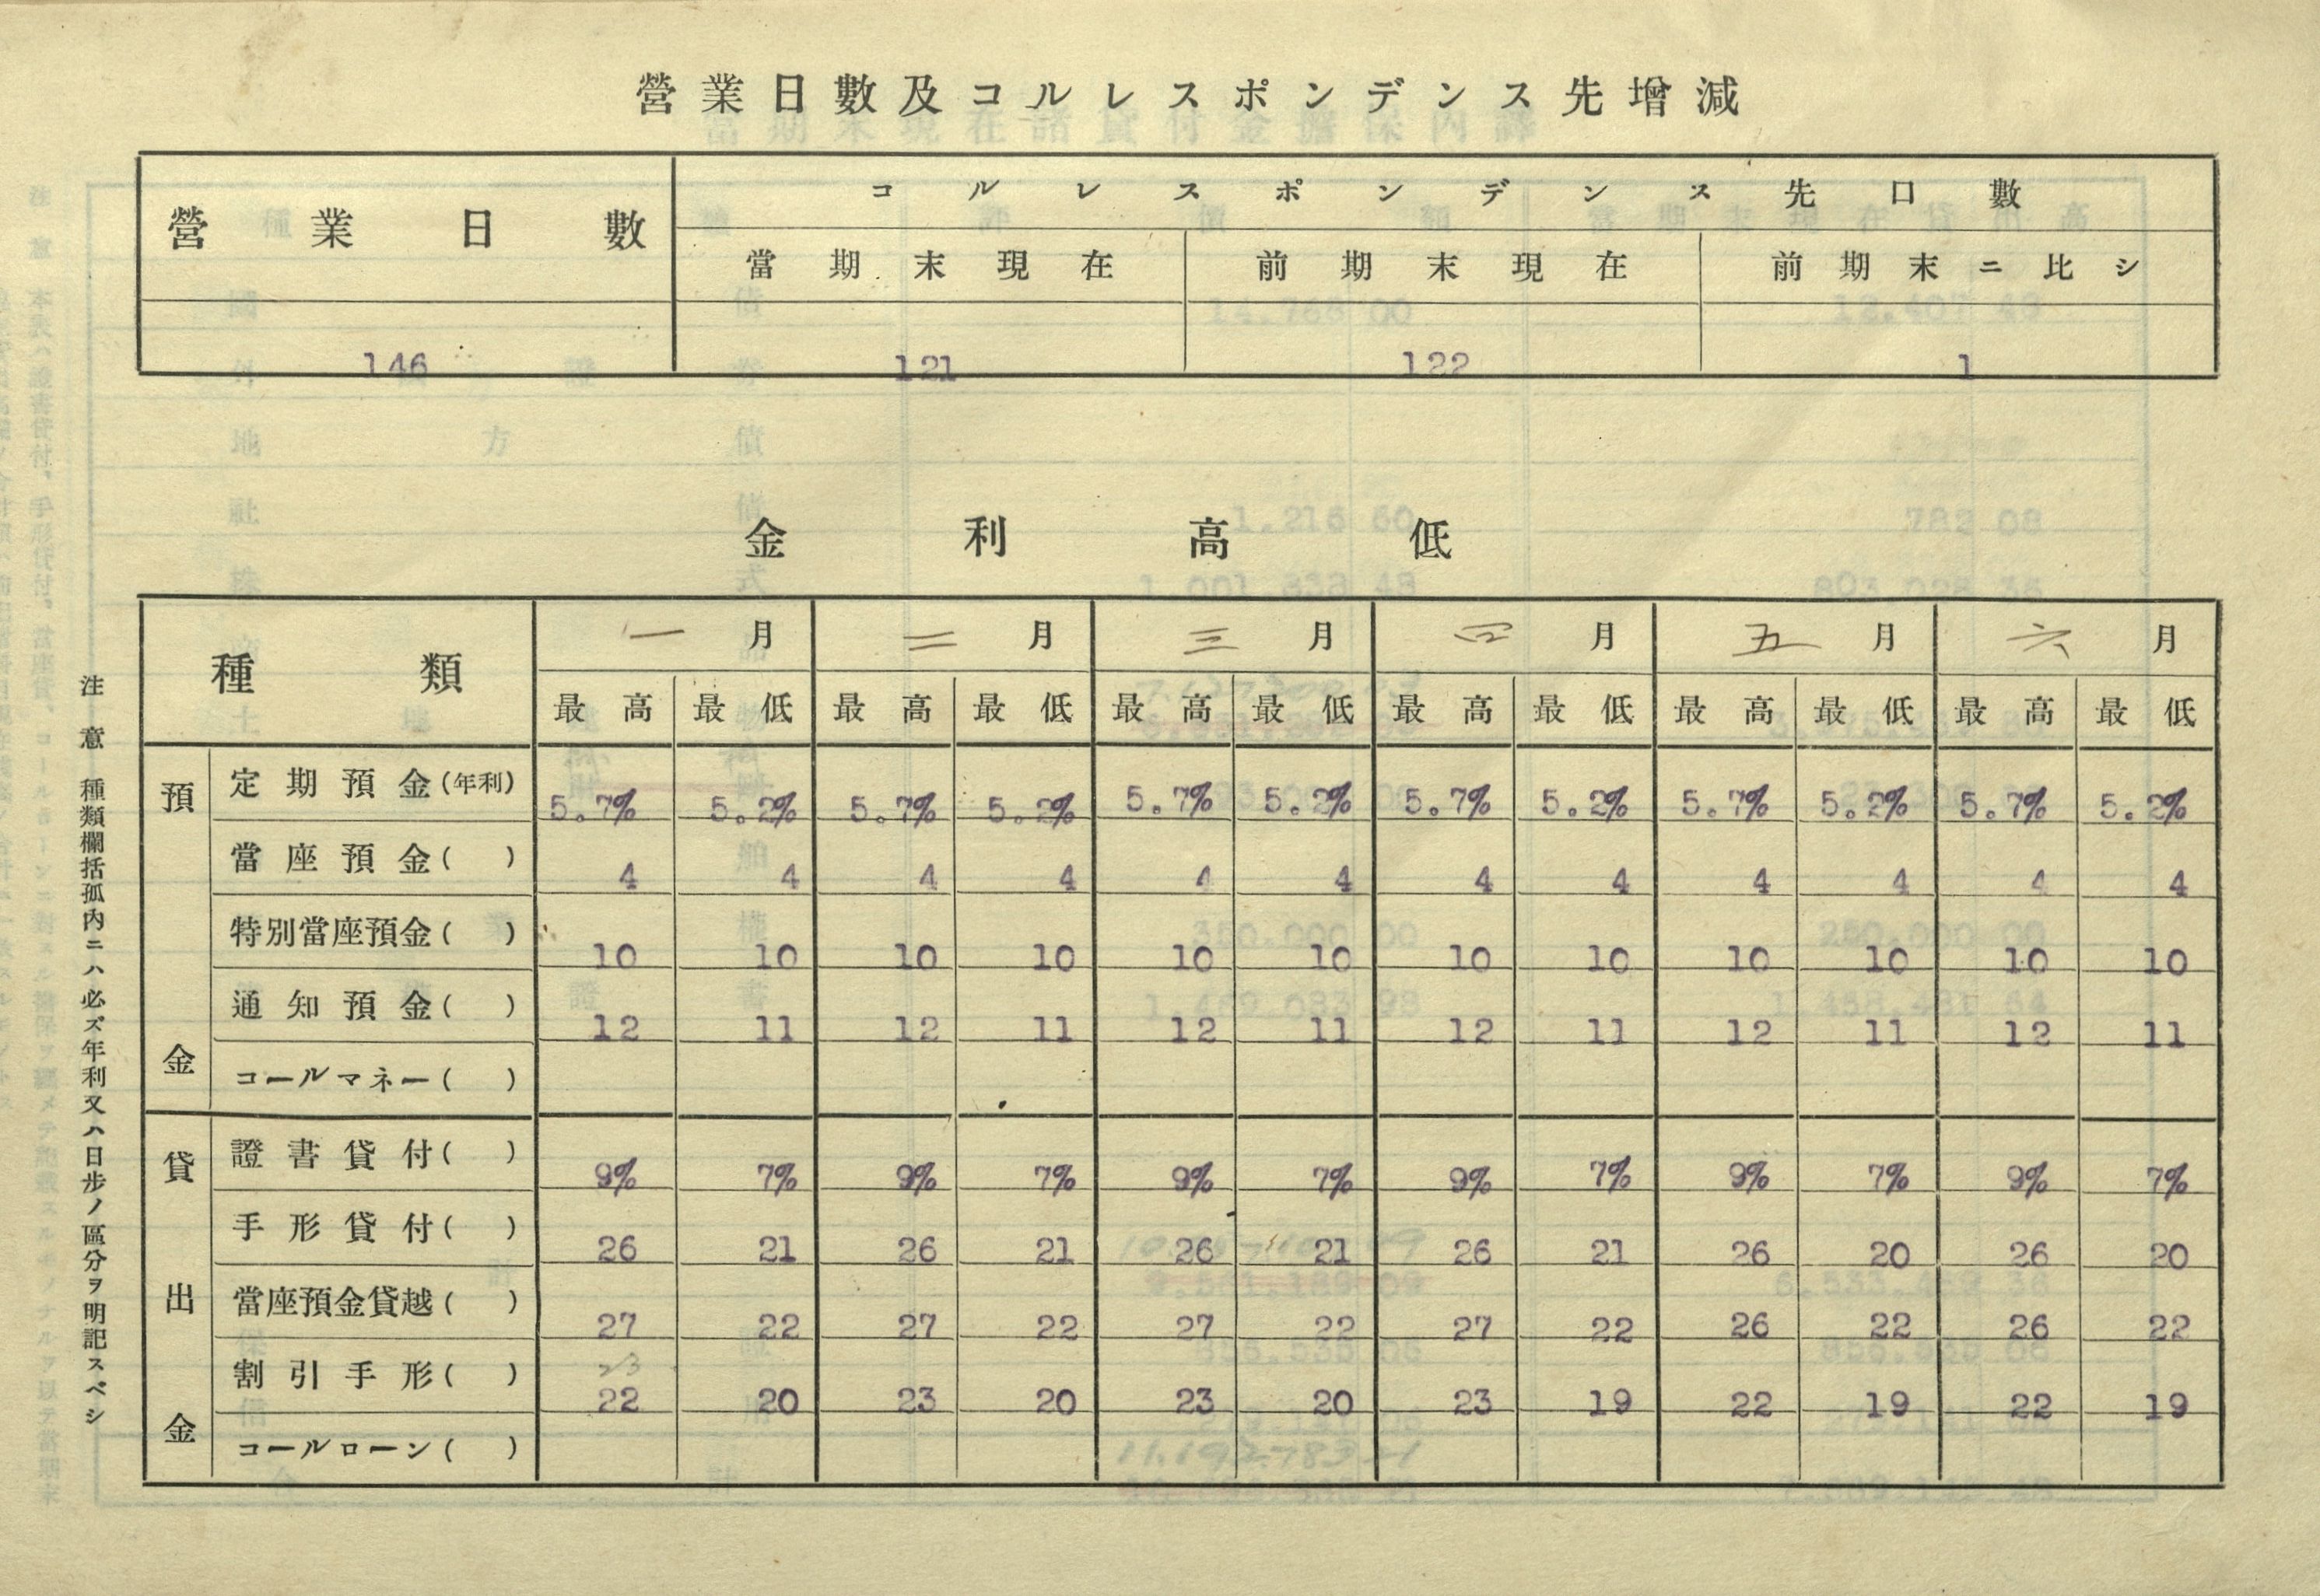 營業日數及コルレスポンデンス先增減
營業日數 コルレスポンデンス先口數
當期末現在 前期末現在 前期末ニ比シ
146 121 122 1
金利高低
種類 一月 二月 三月 四月 五月 六月
最高 最低 最高 最低 最高 最低 最高 最低 最高 最低 最高 最低
預金
定期預金(年利) 5.7% 5.2% 5.7% 5.2% 5.7% 5.2% 5.7% 5.2% 5.7% 5.2% 5.7% 5.2%
當座預金( ) 4 4 4 4 4 4 4 4 4 4 4 4
特別當座預金( ) 10 10 10 10 10 10 10 10 10 10 10 10
通知預金( ) 12 11 12 11 12 11 12 11 12 11 12 11
コールマネー( )
貸出金
證書貸付( ) 9% 7% 9% 7% 9% 7% 9% 7% 9% 7% 9% 7%
手形貸付( ) 26 21 26 21 26 21 26 21 26 20 26 20
當座預金貸越( ) 27 22 27 22 27 22 27 22 26 22 26 22
23
割引手形( ) 22 20 23 20 23 20 23 19 22 19 22 19
コールローン( )
注意 種類欄括孤內ニハ必ズ年利又ハ日步ノ區分ヲ明記スベシ